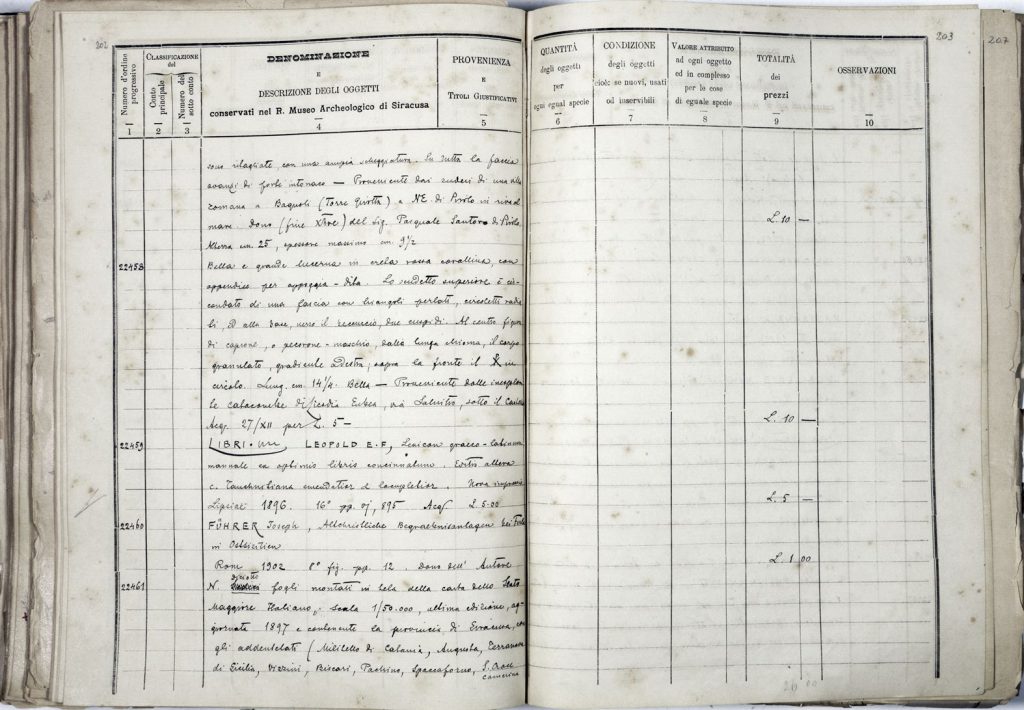 202
203
207
Numero d'ordine progressivo
CLASSIFICAZIONE del
Conto principale
Numero del sotto conto
DENOMINAZIONE
E
DESCRIZIONE DEGLI OGGETTI
conservati nel R. Museo Archeologico di Siracusa
PROVENIENZA
E
TITOLI GIUSTIFICATIVI
QUANTITÀ
degli oggetti
per
ogni egual specie
CONDIZIONE
degli oggetti
cioè: se nuovi, usati
od inservibili
VALORE ATTRIBUITO
ad ogni oggetto
ed in complesso
per le cose
di eguale specie
TOTALITÀ
dei
prezzi
OSSERVAZIONI
1 2 3 4 5 6 7 8 9 10
sono ritagliate, con una ampia scheggiatura. Su tutta la faccia
avanzi di forte intonaco — Proveniente dai ruderi di una villa
romana a Bagnoli (Torre) a NE. di in riva al
mare. Dono (fine) del Sig. Pasquale Santoro di L. 10 —
Altezza cm. 25, spessore massimo cm. 9 1/2
22458 Bella e grande lucerna in creta rossa corallina, con
appendice per appoggia-dita. Lo scudetto superiore è cir-
condato di una fascia con triangoli perlati, circoletti radia
ti, ed alla base, verso il beccuccio, due cuspidi. Al centro figura
di caprone, o pecorone-maschio, dalla lunga chioma, il corpo
granulato, gradiente a destra; sopra la fronte il in
circolo. Lung. cm. 14 1/4. Bella — Proveniente dalle inesplora
te catacombe di, via, sotto il
Acq. 27/XII per L. 5 — L. 10 —
22459 LIBRI. LEOPOLD E.F, Lexicon graeco-latinum
manuale ex optimis libris concinnatum. Editio altera
c. Tauchnitiana emendatior et locupletior. Nova impressio
Lipsiae 1896. 16° pp., 895 Acq. L. 5.00 L. 5 —
22460 FÜHRER Joseph, Altchristliche Begraebnisanlagen bei
in Ostsicilien
Rom 1902 8° fig. pp. 12 dono dell'Autore L. 1 00
22461 N. diciotto fogli montati in tela della carta dello Stato
Maggiore Italiano, scala 1/50.000, ultima edizione, ag-
giornata 1897 e contenente la provincia di Siracusa, con
gli addentellati (Militello di Catania, Augusta, Terranova
di Sicilia, Vizzini, Biscari, Pachino, Spaccaforno, S. Croce
Camerina
20 00